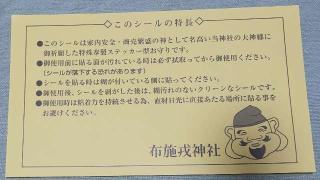 ◇このシールの特長◇
●このシールは家内安全・商売繁盛の神として名高い当神社の大神様に
御祈願した特殊奉製ステッカー型お守りです。
●御使用前に貼る面が汚れている時は必ず拭取ってから御使用ください。
(シールが落下する恐れがあります)
●シールを貼る時は糊が付いている側に貼ってください。
●御使用後、シールを剥がした後は、糊汚れのないクリーンなシールです。
●御使用時は粘着力を持続させる為、直射日光に直接あたる場所に貼る事を
お避けください。
布施戎神社